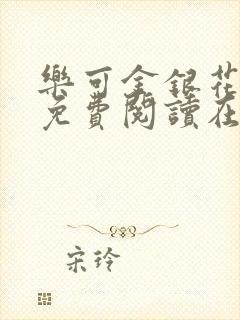 樂可金銀花
免費閱讀在
宋玲